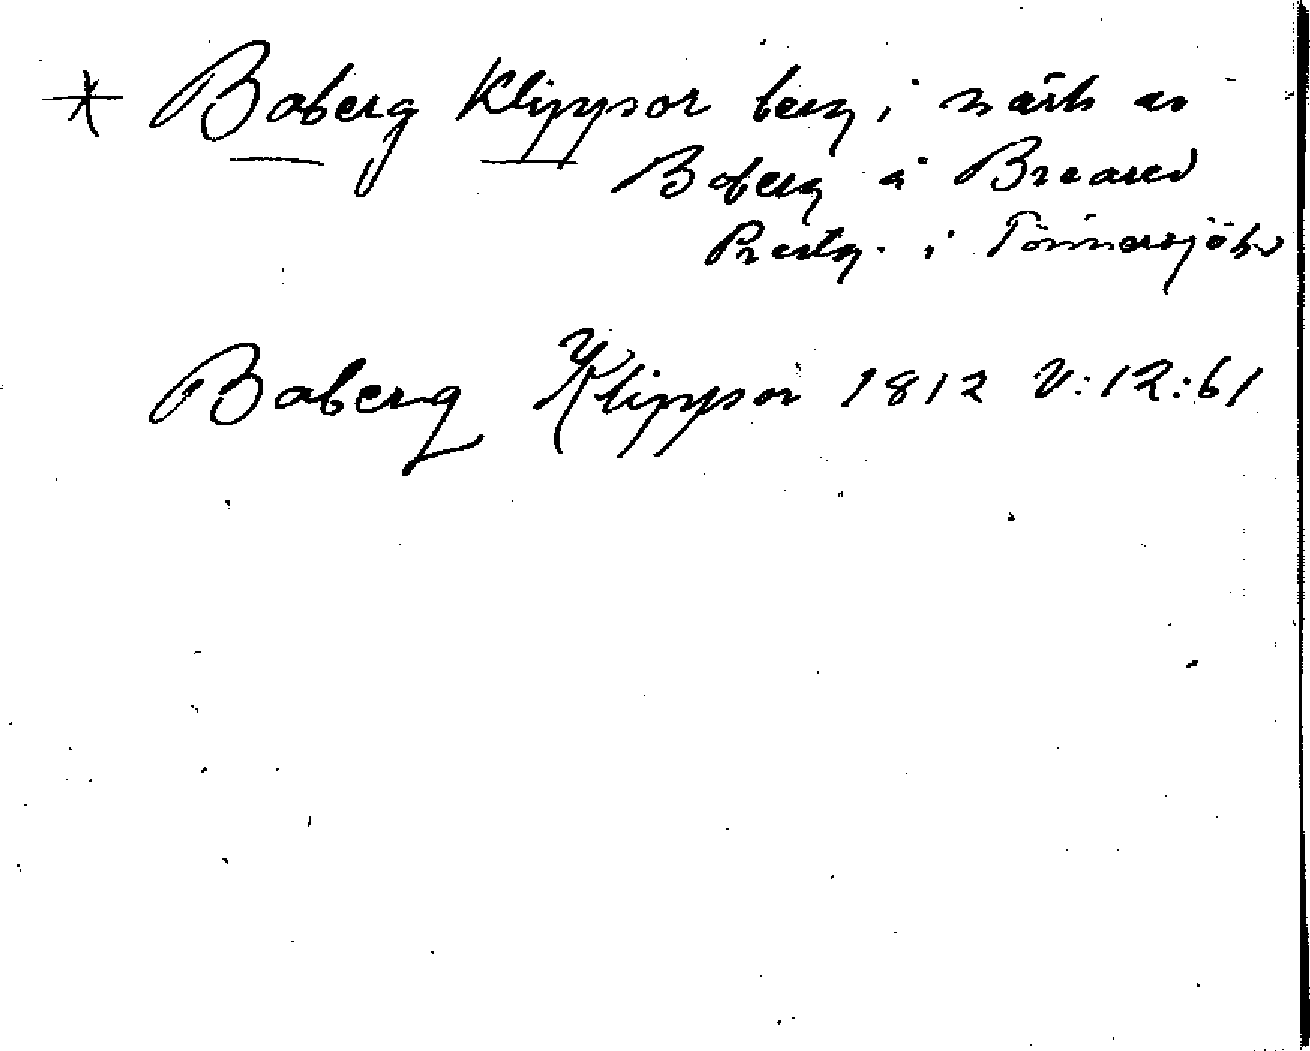 * Boberg Klippor berg i närh av
Boberg å Breared
Prestg. i Tönnersjö hd
Boberg Klippor 1812 V:12:61